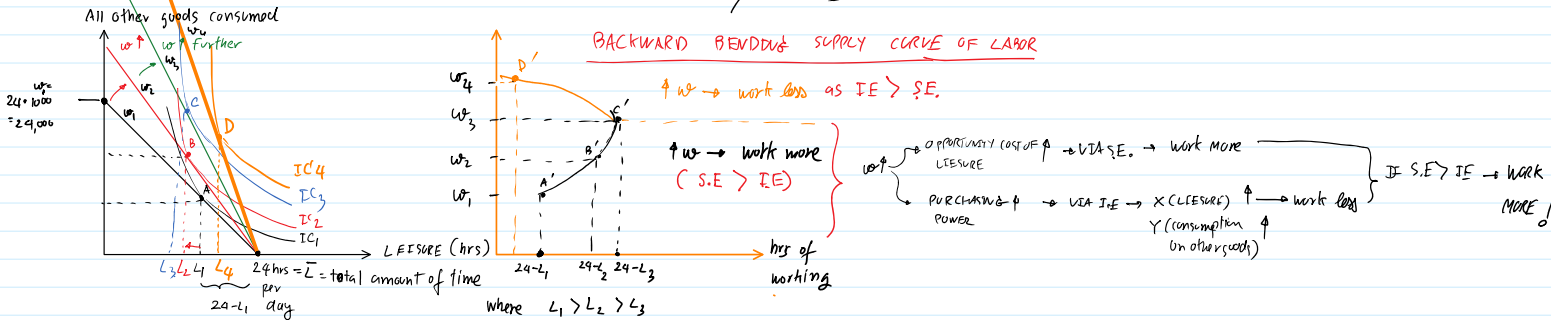 All other goods consumed
w₄
w↑
w further
w₃
w₂
w₁
w₁=
24·1000
=24,000
C
D
B
A
IC4
IC3
IC2
IC1
LEISURE (hrs)
L3 L2 L1 L4 24hrs = L̅ = total amount of time
per
day
24-L1
BACKWARD BENDING SUPPLY CURVE OF LABOR
D'
w4
↑ w → work less as IE > S.E.
w3
C'
w2
B'
↑ w → work more
(S.E > IE)
w1
A'
24-L1 24-L2 24-L3
hrs of
working
where L1 > L2 > L3
w↑
OPPORTUNITY COST OF ↑ → VIA S.E. → work more
LIESURE
PURCHASING ↑ → VIA I.E → X (LIESURE) ↑ → work less
POWER
Y (consumption ↑
on other goods)
If S.E > IE → WORK
MORE!